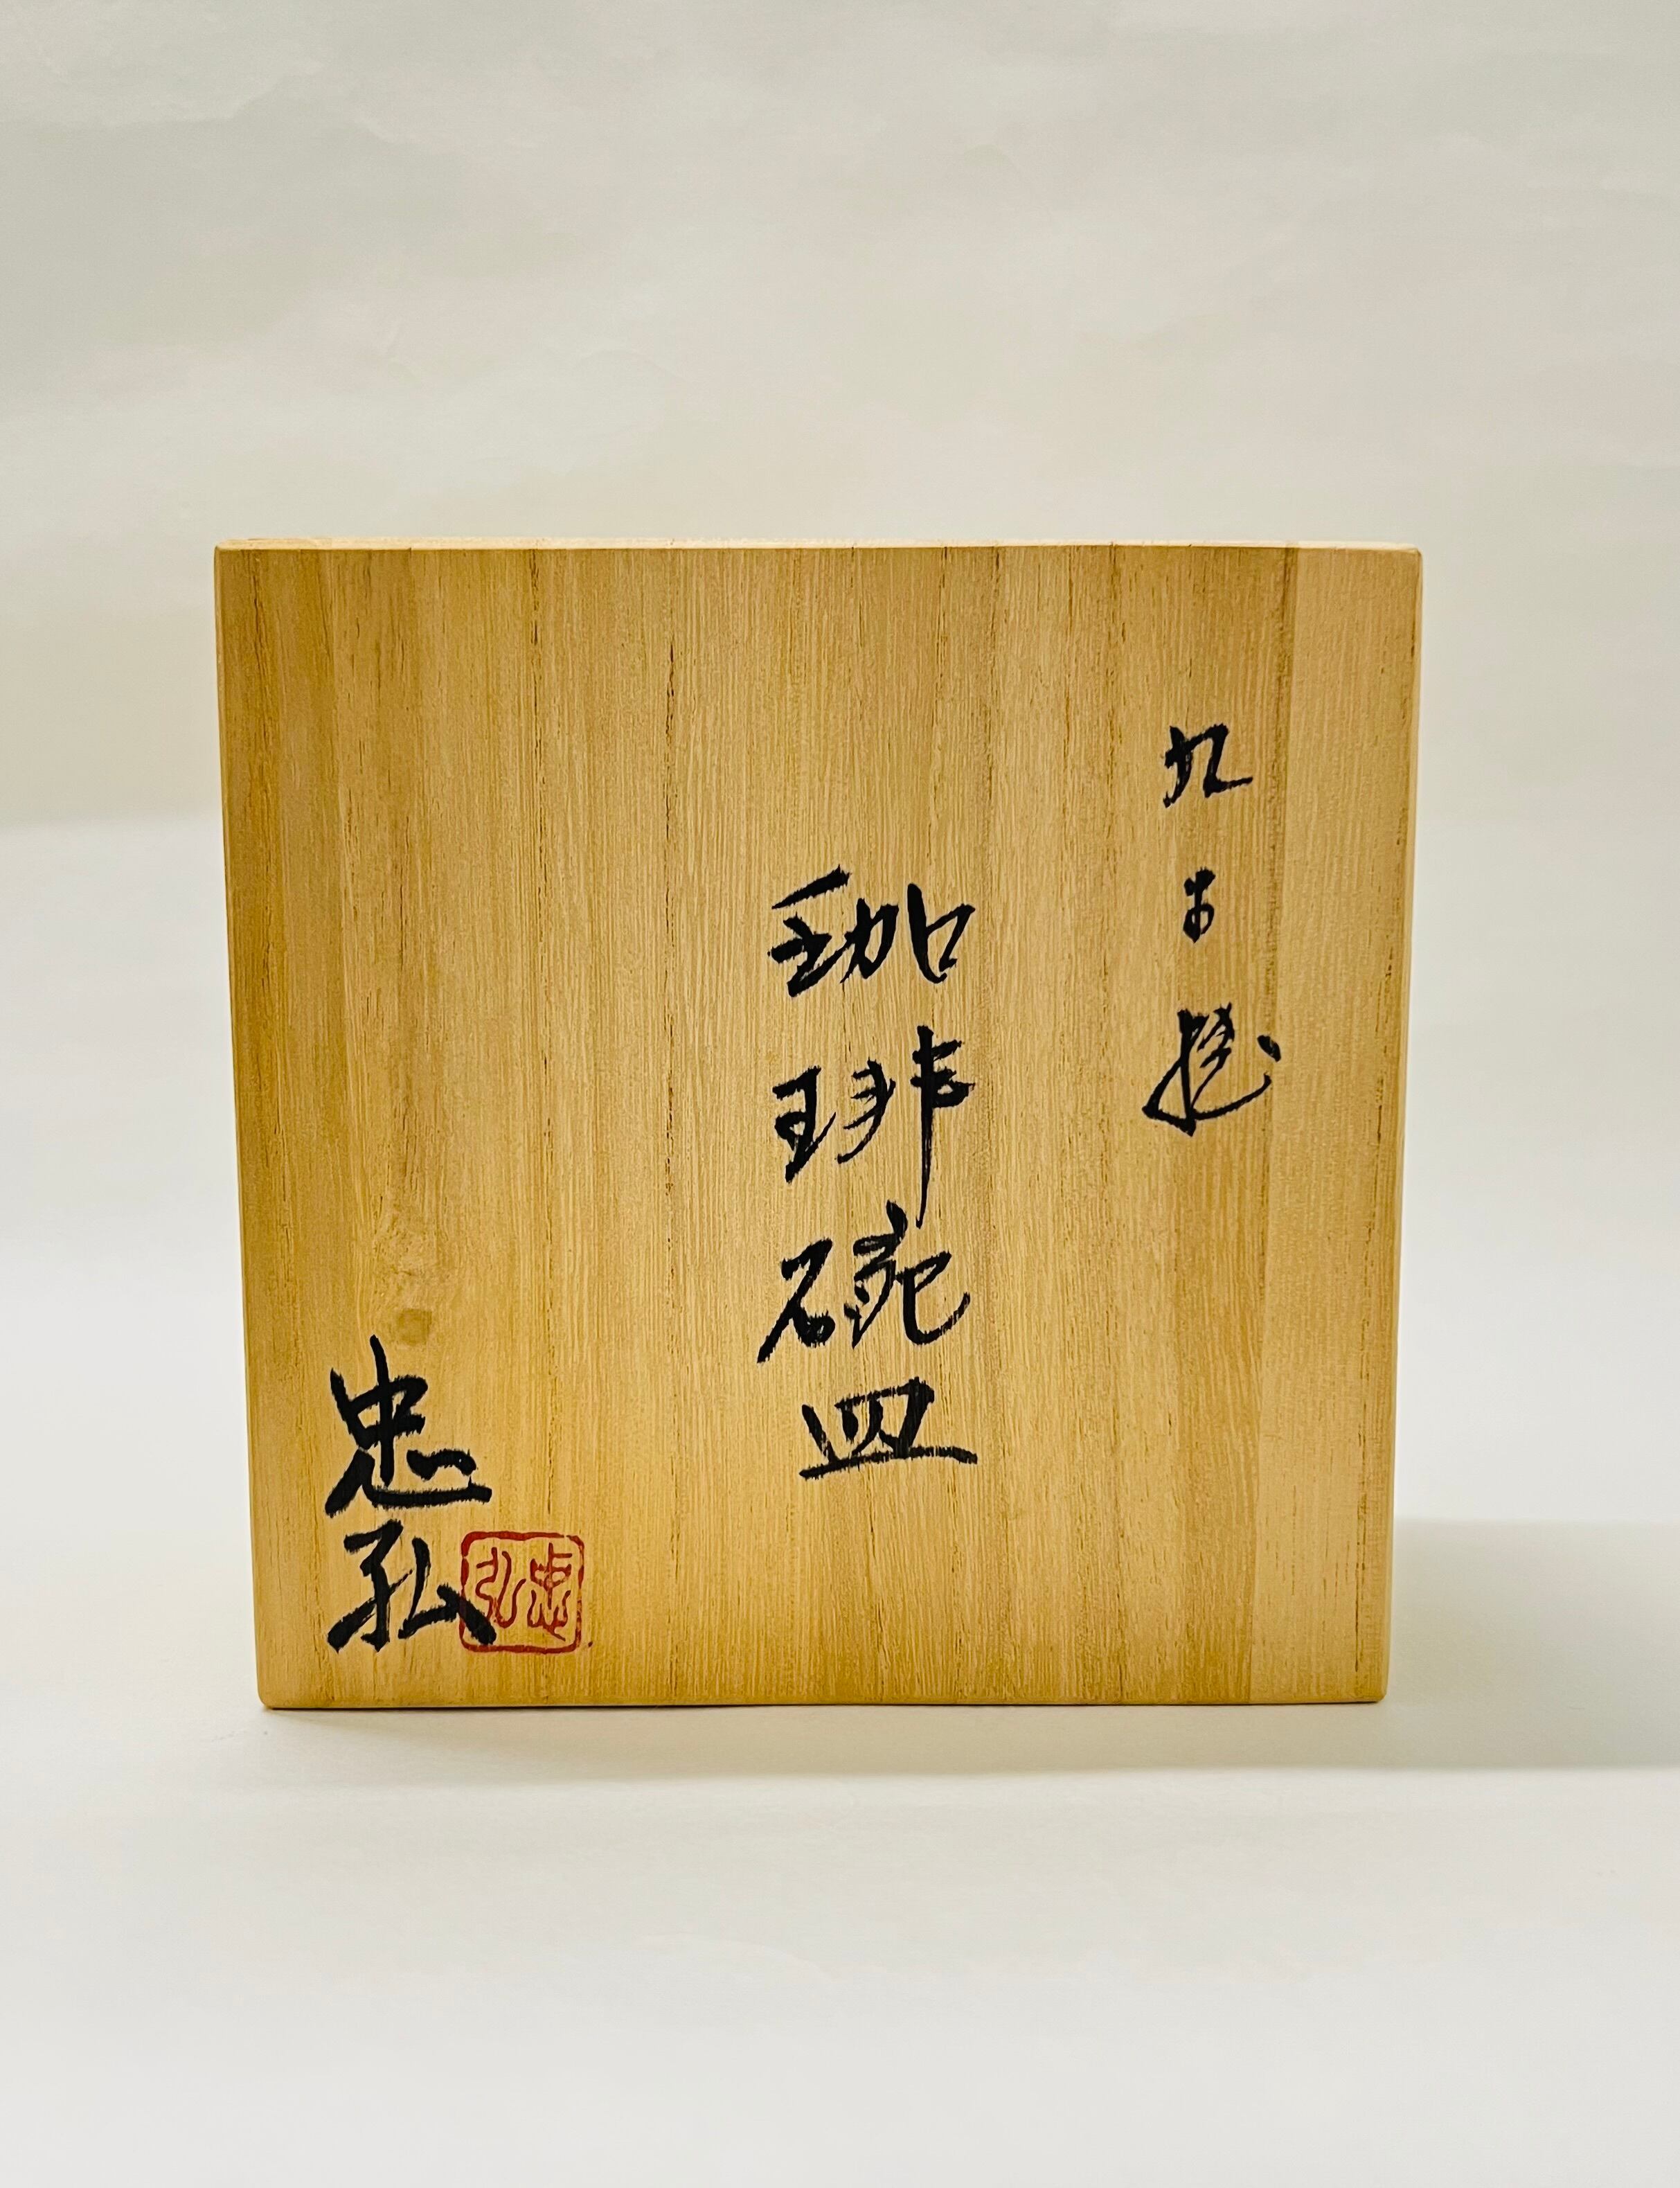 九谷焼
珈琲碗皿
忠弘
忠弘